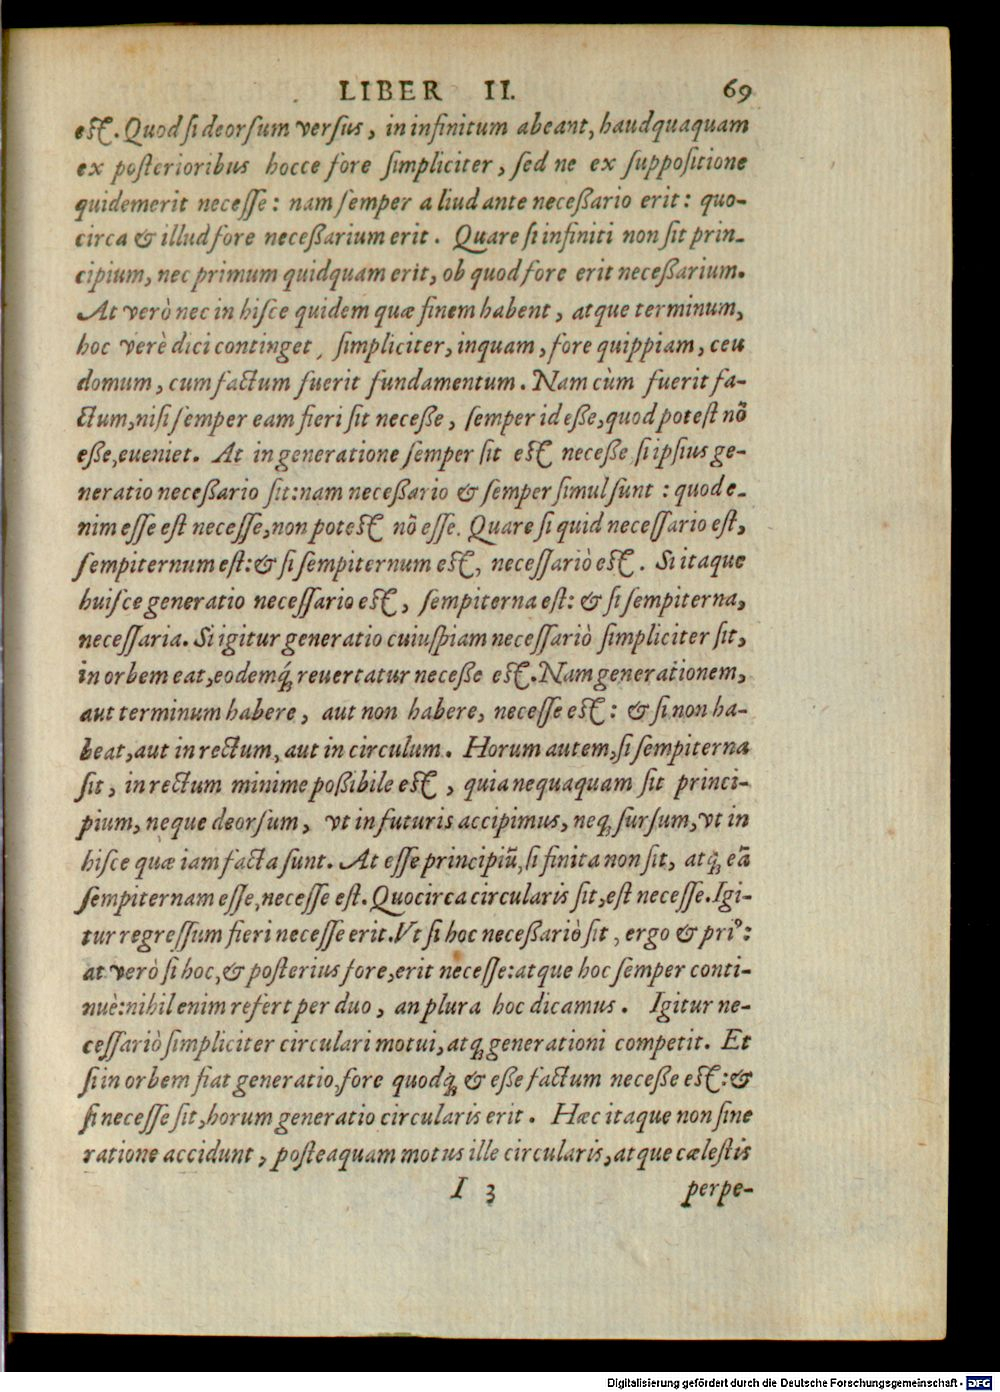 LIBER II. 69
est. Quod si deorsum versus, in infinitum abeant, haudquaquam
ex posterioribus hocce fore simpliciter, sed ne ex suppositione
quidem erit necesse: nam semper aliud ante neceßario erit: quo-
circa & illud fore neceßarium erit. Quare si infiniti non sit prin-
cipium, nec primum quidquam erit, ob quod fore erit neceßarium.
At verò nec in hisce quidem quæ finem habent, atque terminum,
hoc verè dici continget, simpliciter, inquam, fore quippiam, ceu
domum, cum factum fuerit fundamentum. Nam cùm fuerit fa-
ctum, nisi semper eam fieri sit neceße, semper id eße, quod potest nō
eße, eueniet. At in generatione semper sit est neceße, si ipsius ge-
neratio neceßario sit: nam neceßario & semper simul sunt: quod e-
nim esse est necesse, non potest nō esse. Quare si quid necessario est,
sempiternum est: & si sempiternum est, necessariò est. Si itaque
huisce generatio necessario est, sempiterna est: & si sempiterna,
necessaria. Si igitur generatio cuiuspiam necessariò simpliciter sit,
in orbem eat, eodemq́; reuertatur neceße est. Nam generationem,
aut terminum habere, aut non habere, necesse est: & si non ha-
beat, aut in rectum, aut in circulum. Horum autem, si sempiterna
sit, in rectum minime poßibile est, quia nequaquam sit princi-
pium, neque deorsum, vt in futuris accipimus, neq; sursum, vt in
hisce quæ iam facta sunt. At esse principiū, si finita non sit, atq; eā
sempiternam esse, necesse est. Quocirca circularis sit, est necesse. Igi-
tur regressum fieri necesse erit. Vt si hoc neceßariò sit, ergo & pri⁹:
at verò si hoc, & posterius fore, erit necesse: atque hoc semper conti-
nuè: nihil enim refert per duo, an plura hoc dicamus. Igitur ne-
cessariò simpliciter circulari motui, atq; generationi competit. Et
si in orbem fiat generatio, fore quodq; & eße factum neceße est: &
si necesse sit, horum generatio circularis erit. Hæc itaque non sine
ratione accidunt, posteaquam motus ille circularis, atque cælestis
I 3 perpe-
Digitalisierung gefördert durch die Deutsche Forschungsgemeinschaft - DFG